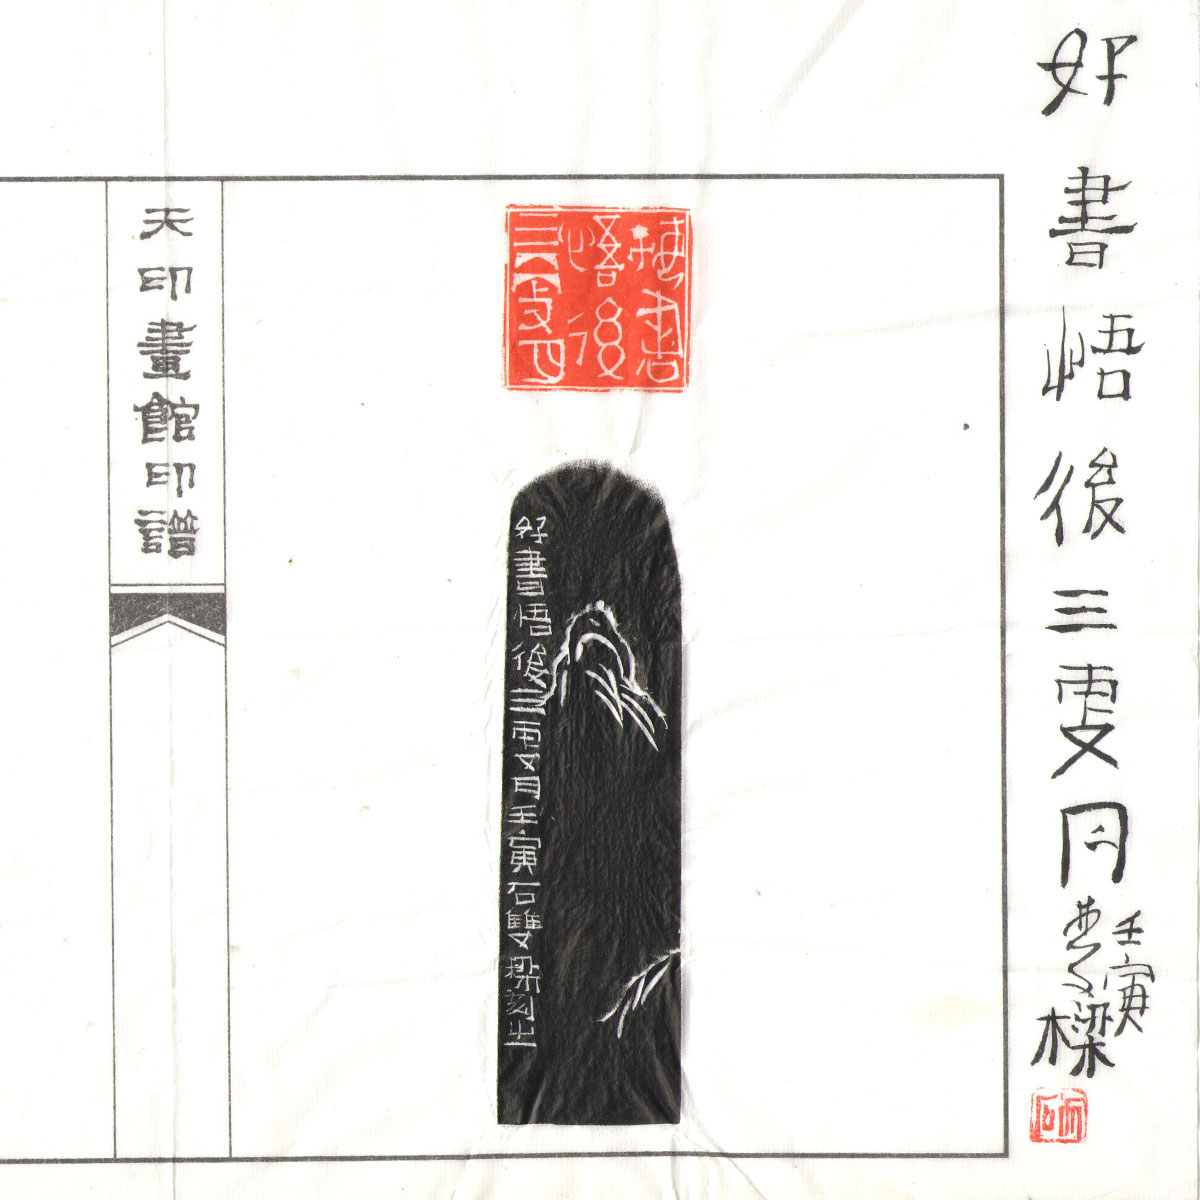 好書悟後三更月
壬寅
樑
好書
悟後
三更月
好書悟後三更月壬寅石雙樑刻之
天印畫館印譜